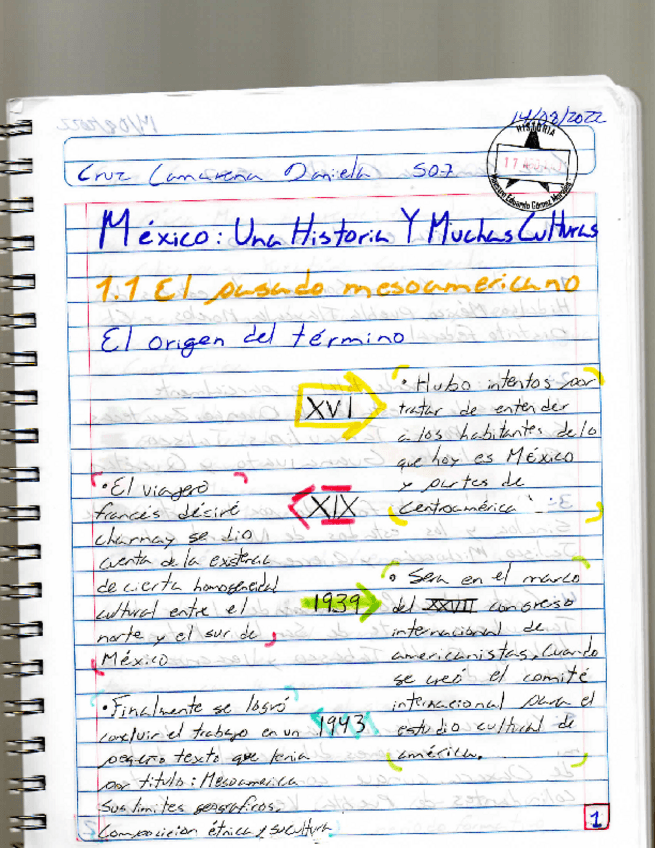 14/08/2022
Cruz Camarena Daniela 507
HISTORIA
17
México: Una Historia Y Muchas Culturas
1.1 El pasado mesoamericano
El origen del término
XVI
• Hubo intentos por
tratar de entender
a los habitantes de lo
que hoy es México
y partes de
Centroamérica
XIX
• El viajero
francés désiré
charnay se dio
cuenta de la existencia
de cierta homogeneidad
cultural entre el
norte y el sur de
México
1939
• Sera en el marco
del XXVII congreso
internacional de
americanistas, Cuando
se creó el comité
internacional para el
estudio cultural de
américa.
1943
• Finalmente se logró
concluir el trabajo en un
pequeño texto que tenia
por titulo: Mesoamerica
Sus limites geograficos,
Composicion étnica y su cultura
1